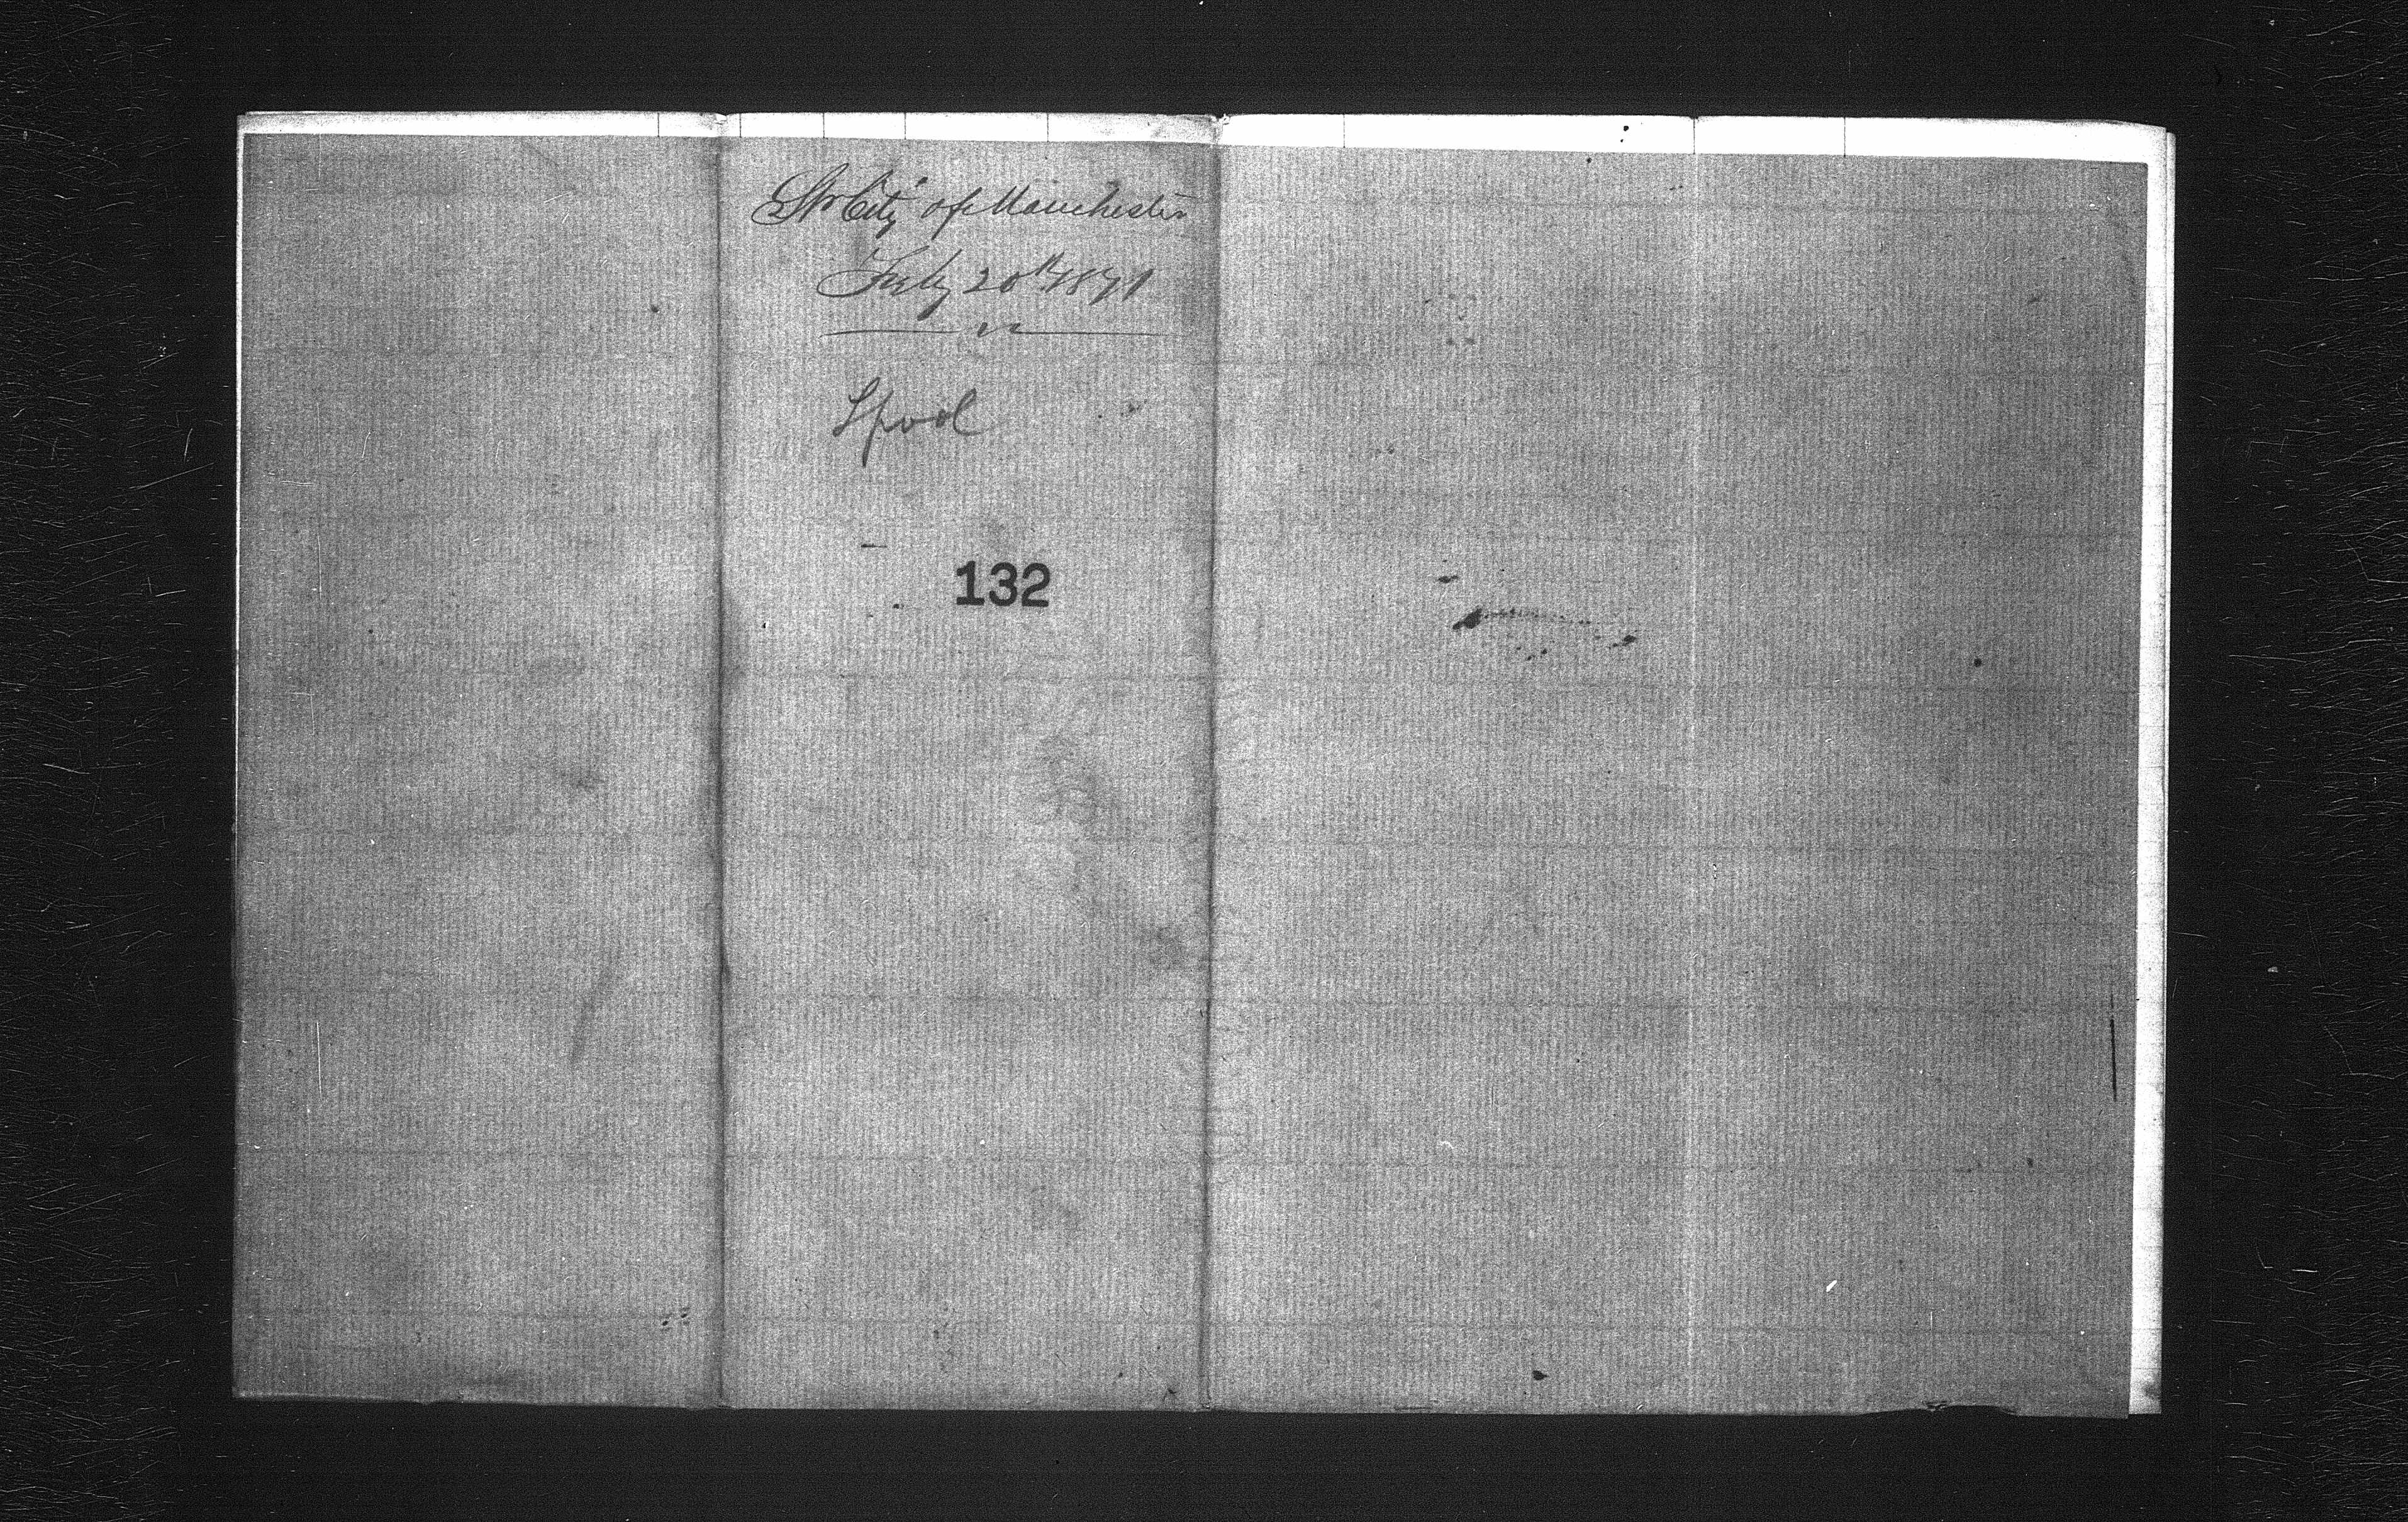 Str "City of Manchester
July 20th 1871
Lpool
132